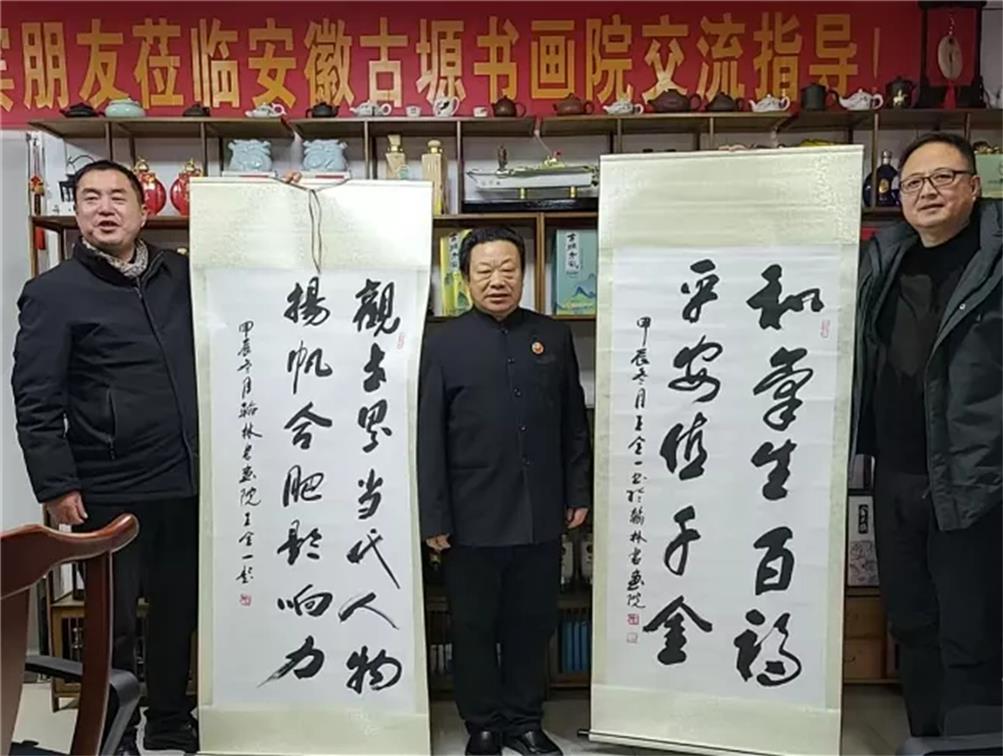 朋友莅临安徽古塬书画院交流指导！
觀当代人物
揚帆合肥影响力
甲辰冬月翰林書画院王金一题
和氣生百福
平安值千金
甲辰冬月王金一书於翰林書画院